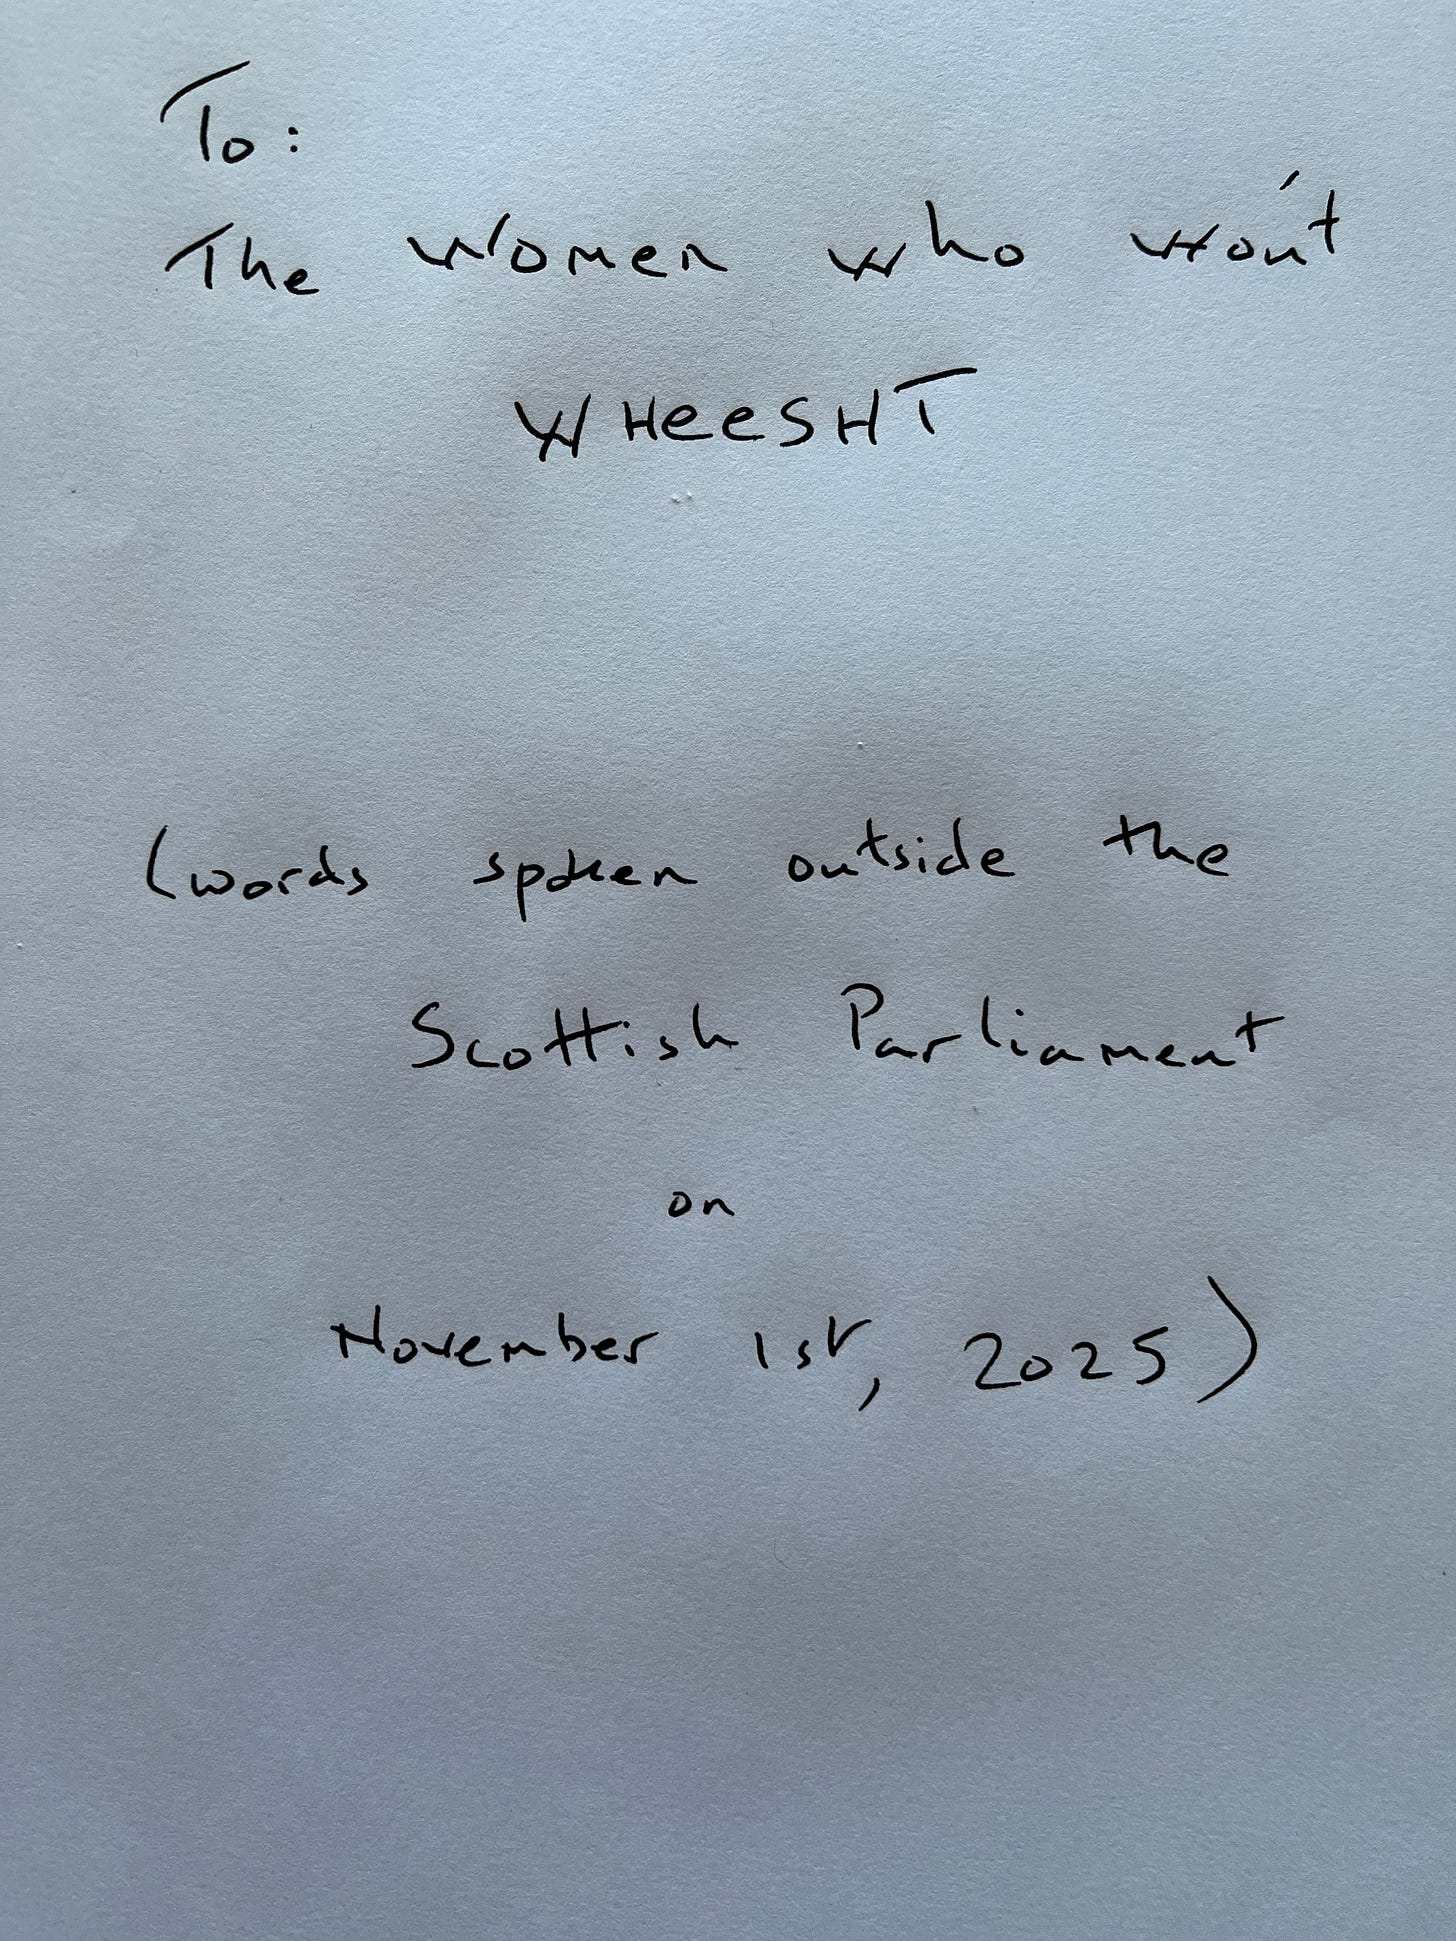 To:
The Women who won't
WHeeSHT
(words spoken outside the
Scottish Parliament
on
November 1st, 2025)